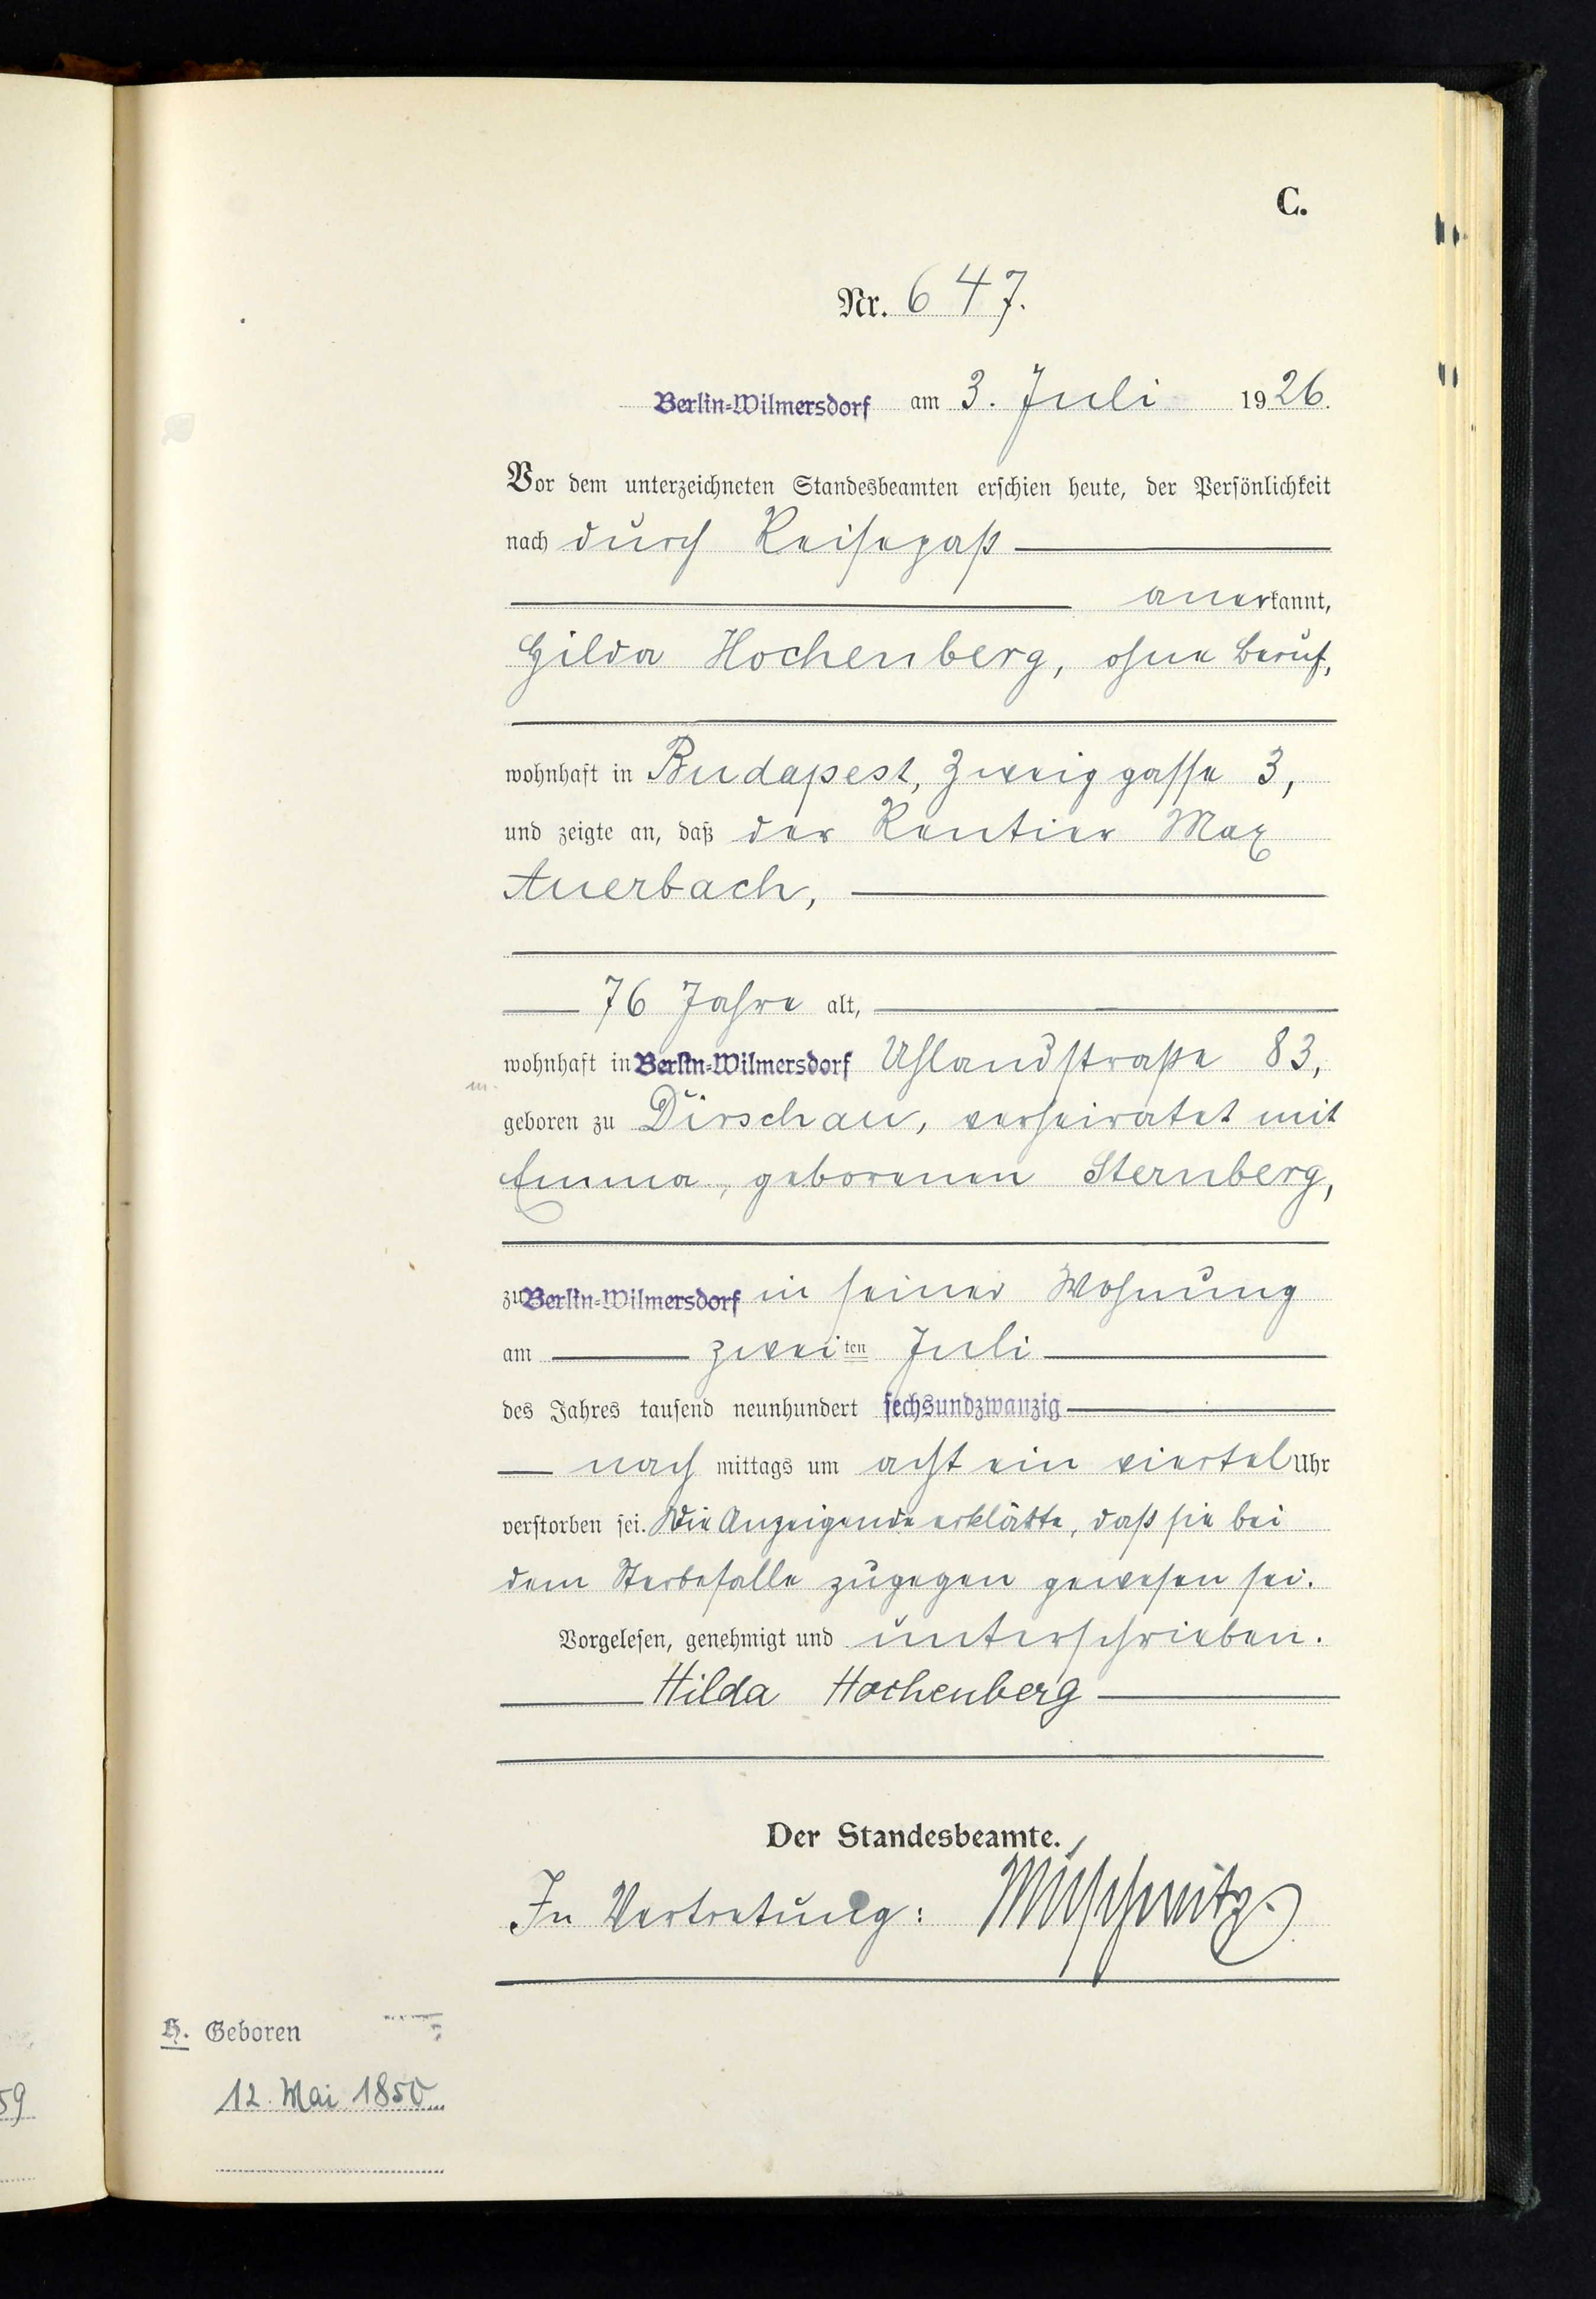 C.
Nr. 647.
Berlin-Wilmersdorf am 3. Juli 1926.
Vor dem unterzeichneten Standesbeamten erschien heute, der Persönlichkeit
nach durch Reisepaß
anerkannt,
Gilda Hochenberg, ohne Beruf,
wohnhaft in Budapest, Zweiggasse 3,
und zeigte an, daß der Rentier Max
Auerbach,
76 Jahre alt,
wohnhaft in Berlin-Wilmersdorf Uhlandstraße 83,
geboren zu Dirschau, verheiratet mit
Emma, geborenen Sternberg,
zu Berlin-Wilmersdorf in seiner Wohnung
am zweiten Juli
des Jahres tausend neunhundert sechsundzwanzig
nach mittags um acht ein viertel Uhr
verstorben sei. Die Anzeigende erklärte, daß sie bei
dem Sterbefalle zugegen gewesen sei.
Vorgelesen, genehmigt und unterschrieben.
Hilda Hochenberg
Der Standesbeamte.
In Vertretung:
H. Geboren
12. Mai 1850
59